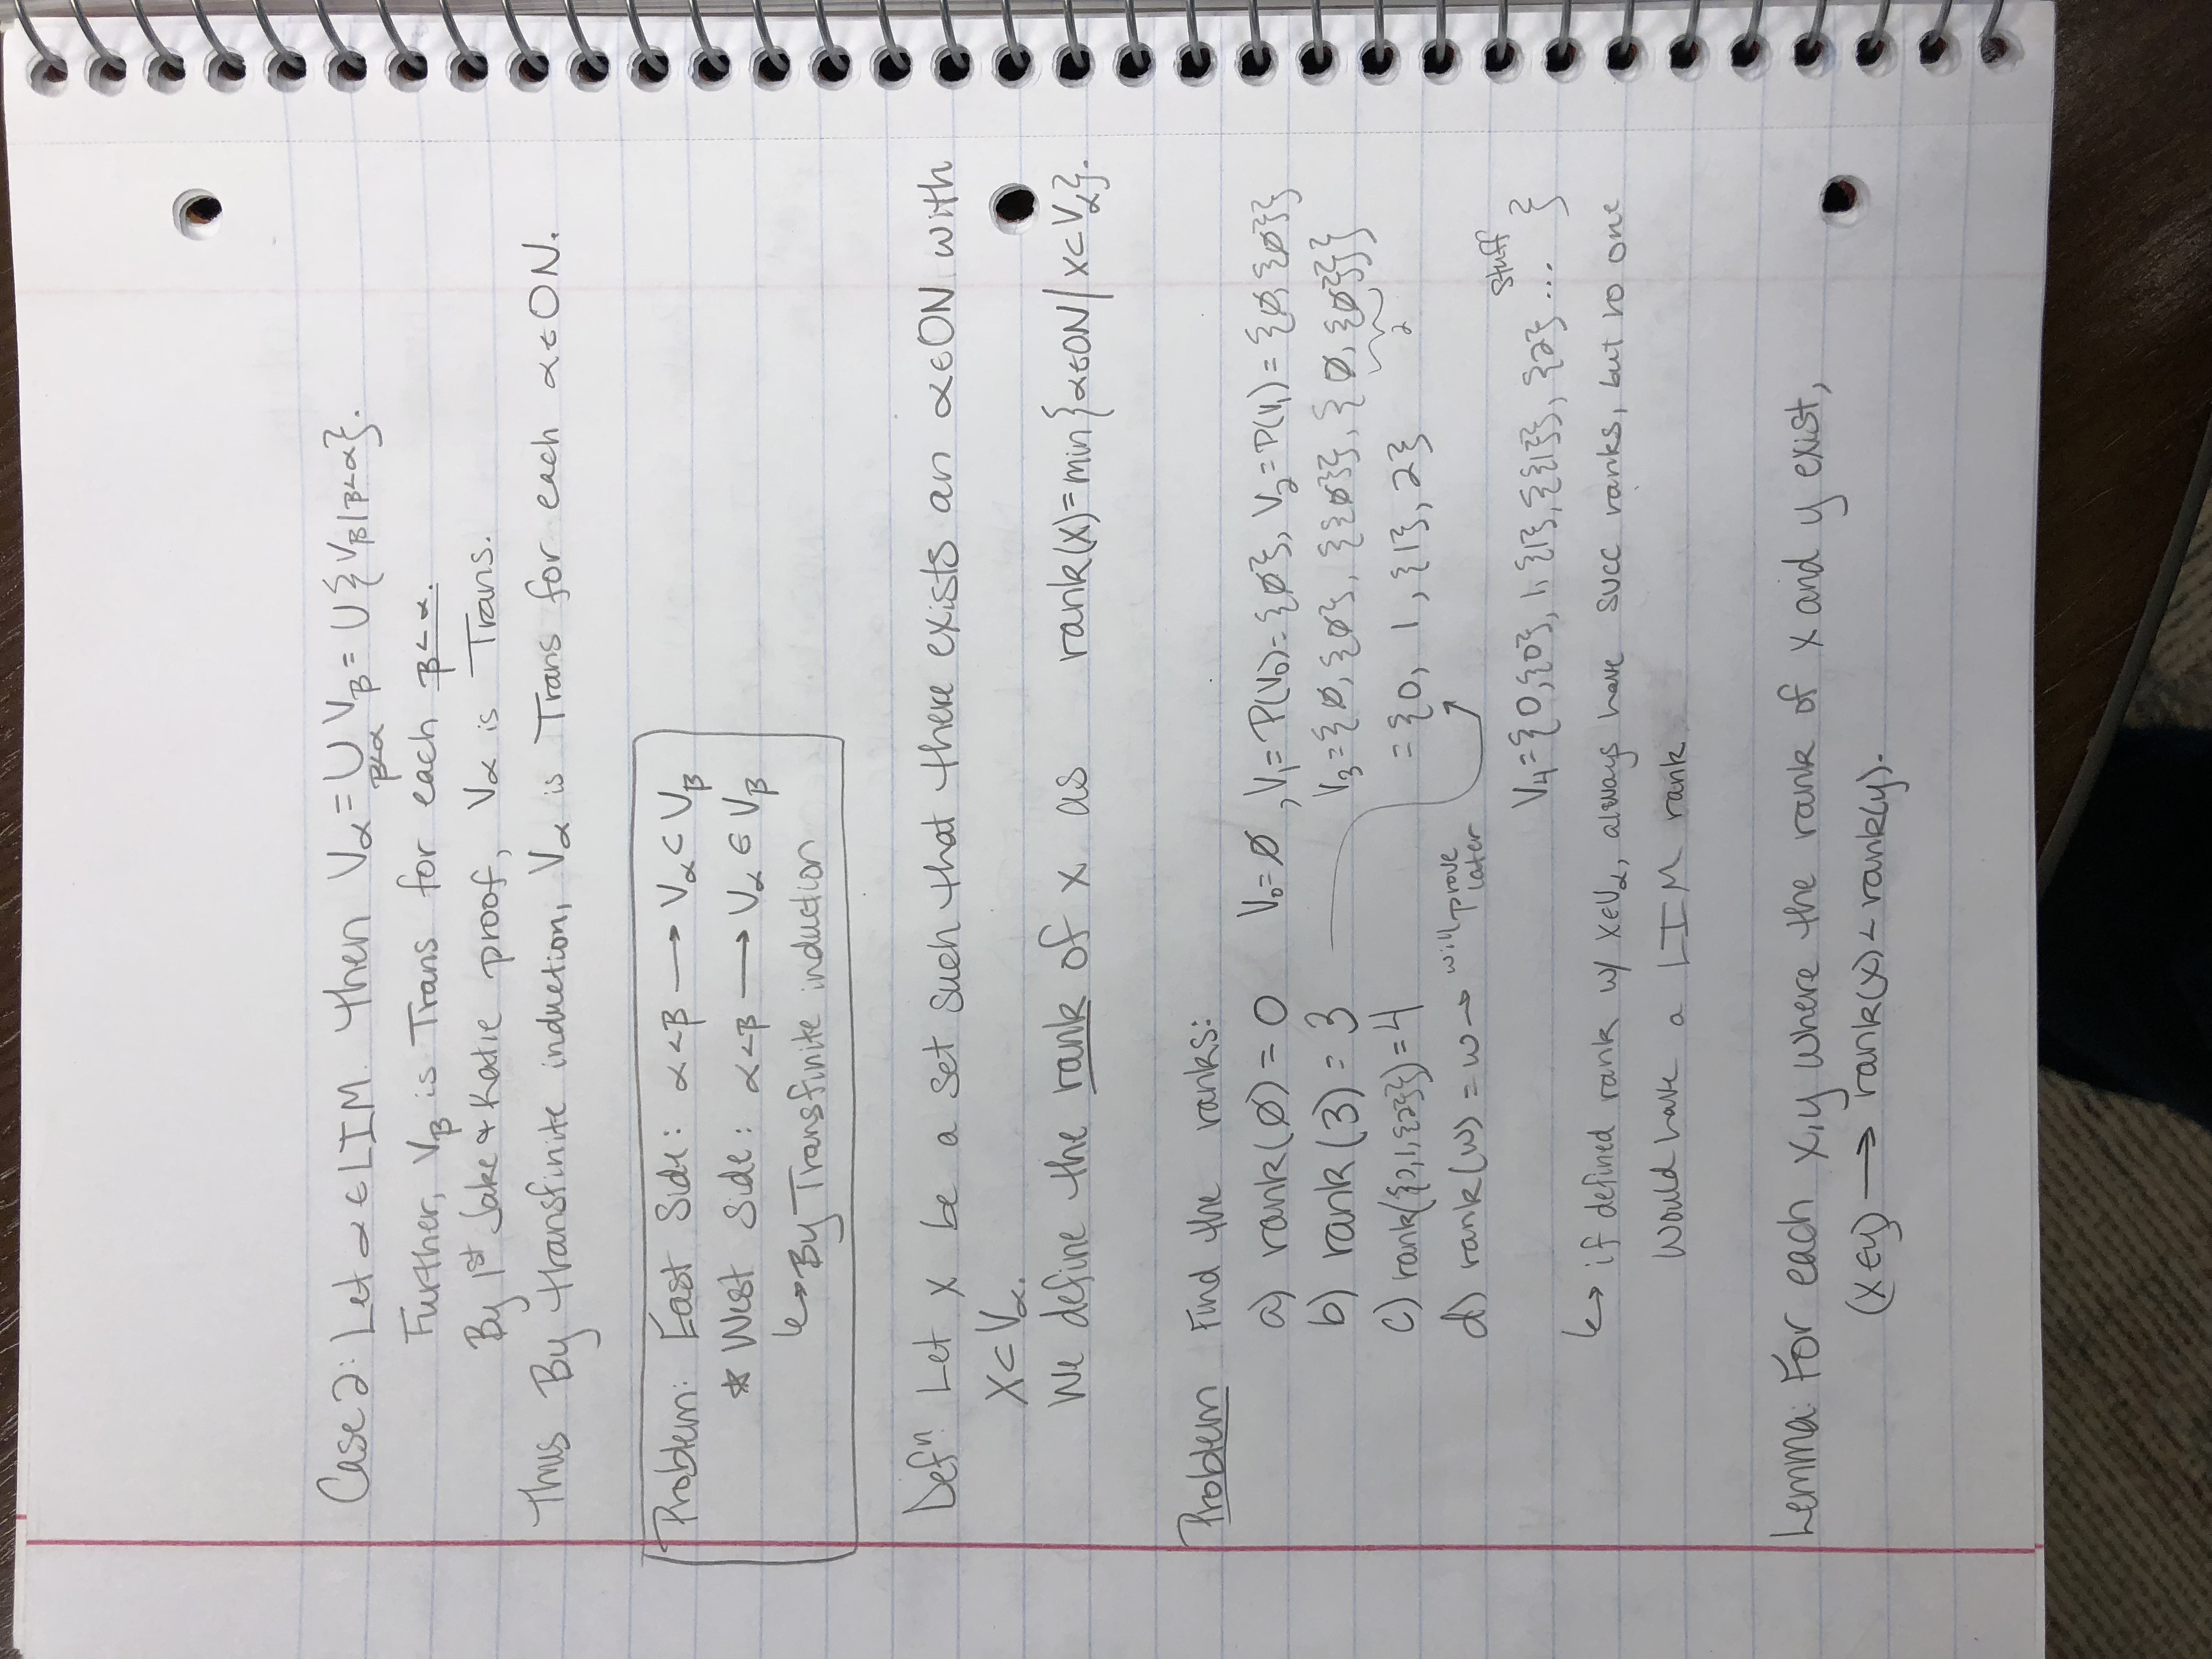 Case 2: Let α ∈ LIM. Then V_α = ⋃_{β<α} V_β = ∪{V_β | β<α}.
Further, V_β is Trans for each β<α.
By 1st Jake & Katie proof, V_α is Trans.
Thus By transfinite induction, V_α is Trans for each α∈ON.
Problem: East Side: α<β ⟶ V_α ⊂ V_β
* West Side: α<β ⟶ V_α ∈ V_β
↳ By Transfinite induction
Defⁿ: Let x be a set such that there exists an α∈ON with
X⊂V_α.
We define the rank of x as rank(x)=min{α∈ON | x⊂V_α}.
Problem Find the ranks:
a) rank(∅) = 0 V₀=∅, V₁=P(V₀)={∅}, V₂=P(V₁)={∅, {∅}}
b) rank(3) = 3 V₃={∅, {∅}, {{∅}}, {∅, {∅}}}
2
c) rank({0,1,{2}})=4 ={0, 1, {1}, 2}
d) rank(ω) = ω → will prove later
V₄={0,{0}, 1, {1}, {{1}}, {2} ... stuff }
↳ if defined rank w/ x∈V_α, always have succ ranks, but no one
would have a LIM rank
Lemma: For each x,y where the rank of x and y exist,
(x∈y) ⟶ rank(x) < rank(y).